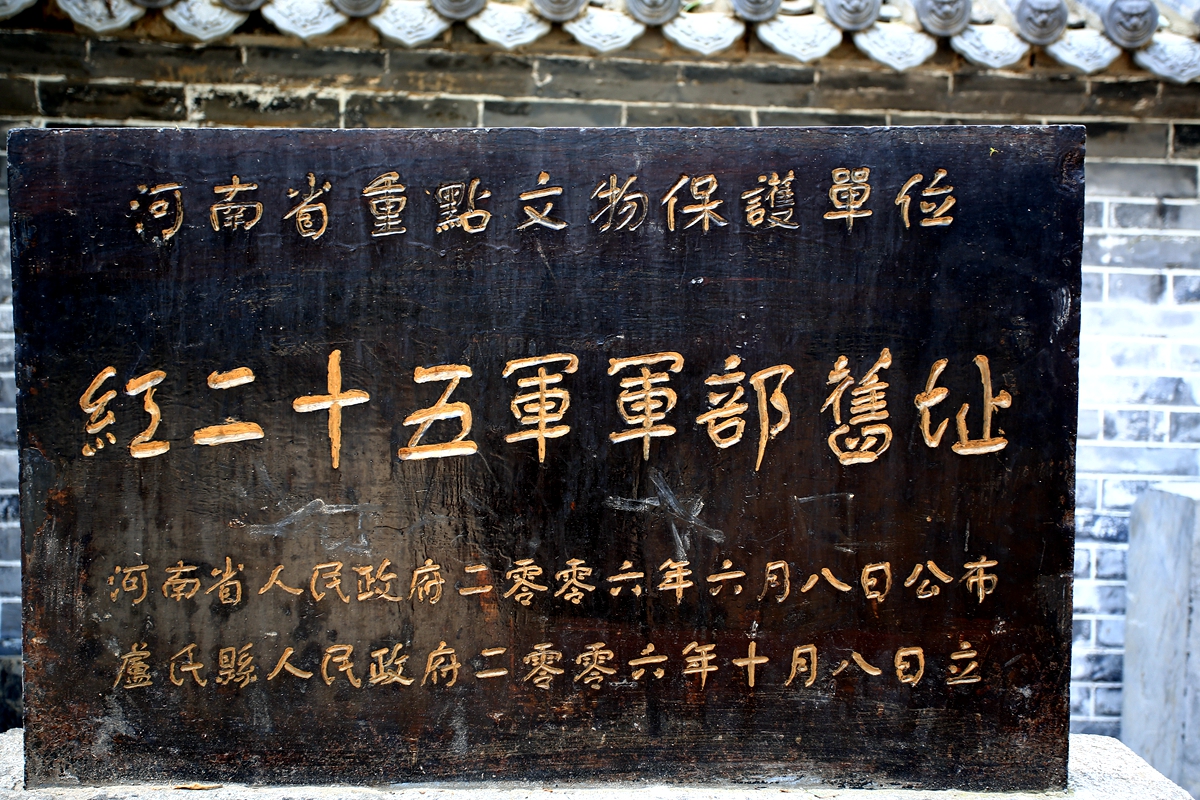 河南省重點文物保護單位
紅二十五軍軍部舊址
河南省人民政府二零零六年六月八日公布
盧氏縣人民政府二零零六年十月八日立